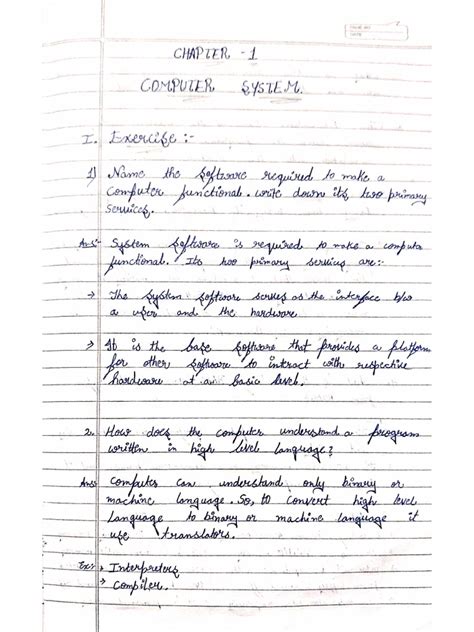 CHAPTER - 1
COMPUTER SYSTEM.
I. Exercise :-
1) Name the software required to make a
computer functional. write down its two primary
services.
Ans:- System software is required to make a compute
functional. Its two primary services are:-
→ The system software serves as the interface b/w
a user and the hardware
→ It is the base software that provides a platform
for other software to interact with respective
hardware at a basic level.
2. How does the computer understand a program
written in high level language?
Ans: Computer can understand only binary or
machine language. So, to convert high level
language to binary or machine language it
use translators.
Ex:- → Interpreters
→ Compiler.